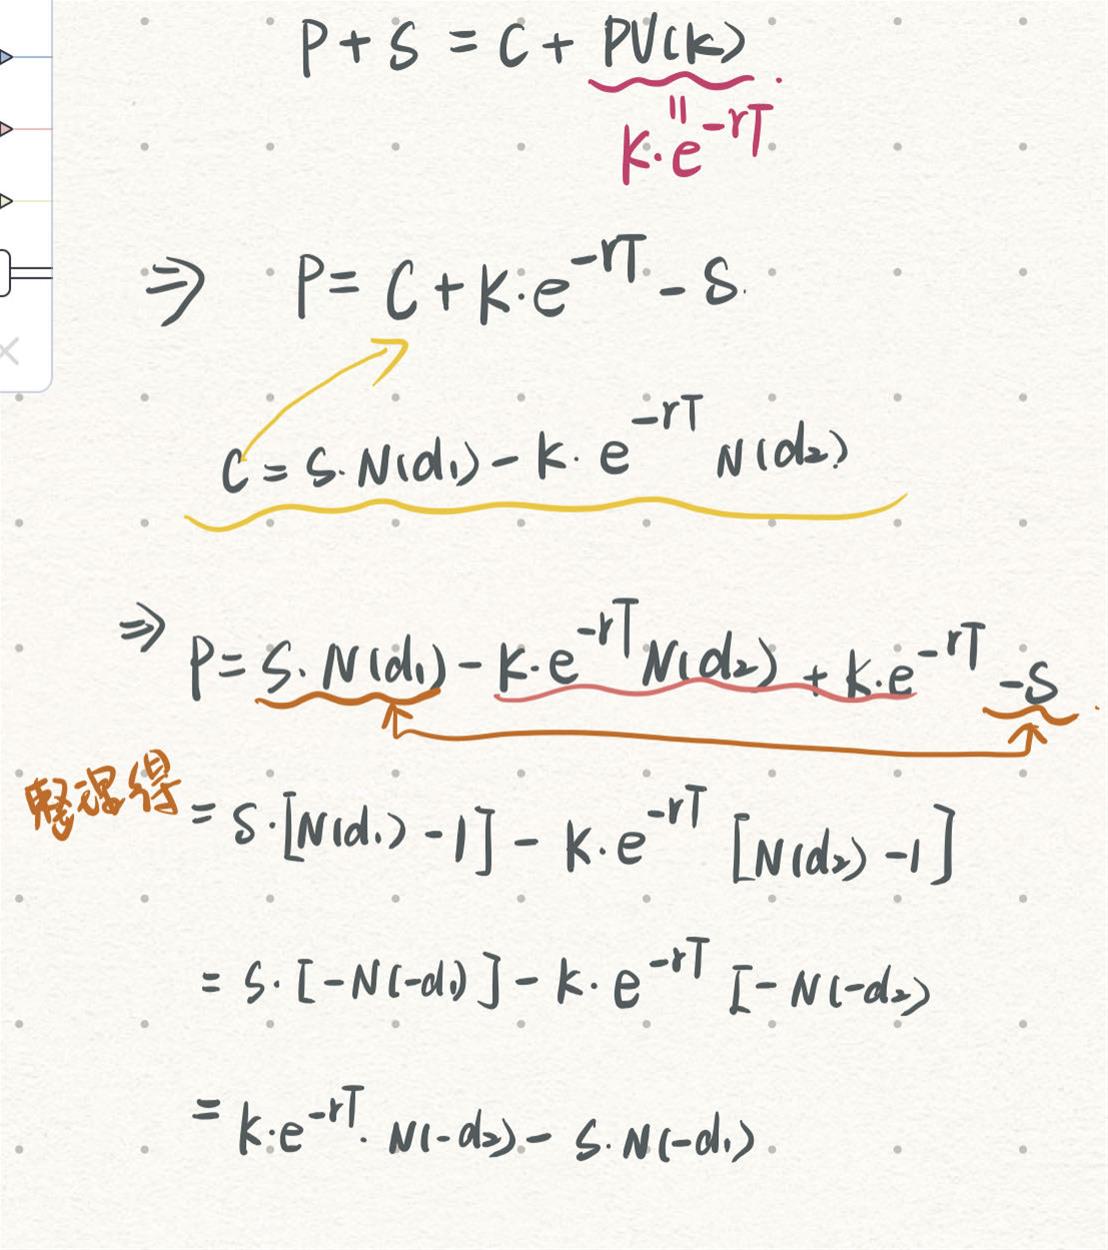 P + S = C + PV(K).
=
K·e^{-rT}
⇒ P = C + K·e^{-rT} - S.
C = S·N(d₁) - K·e^{-rT} N(d₂)
⇒ P = S·N(d₁) - K·e^{-rT} N(d₂) + K·e^{-rT} - S
整理得 = S·[N(d₁) - 1] - K·e^{-rT} [N(d₂) - 1]
= S·[-N(-d₁)] - K·e^{-rT} [-N(-d₂)
= K·e^{-rT}·N(-d₂) - S·N(-d₁)